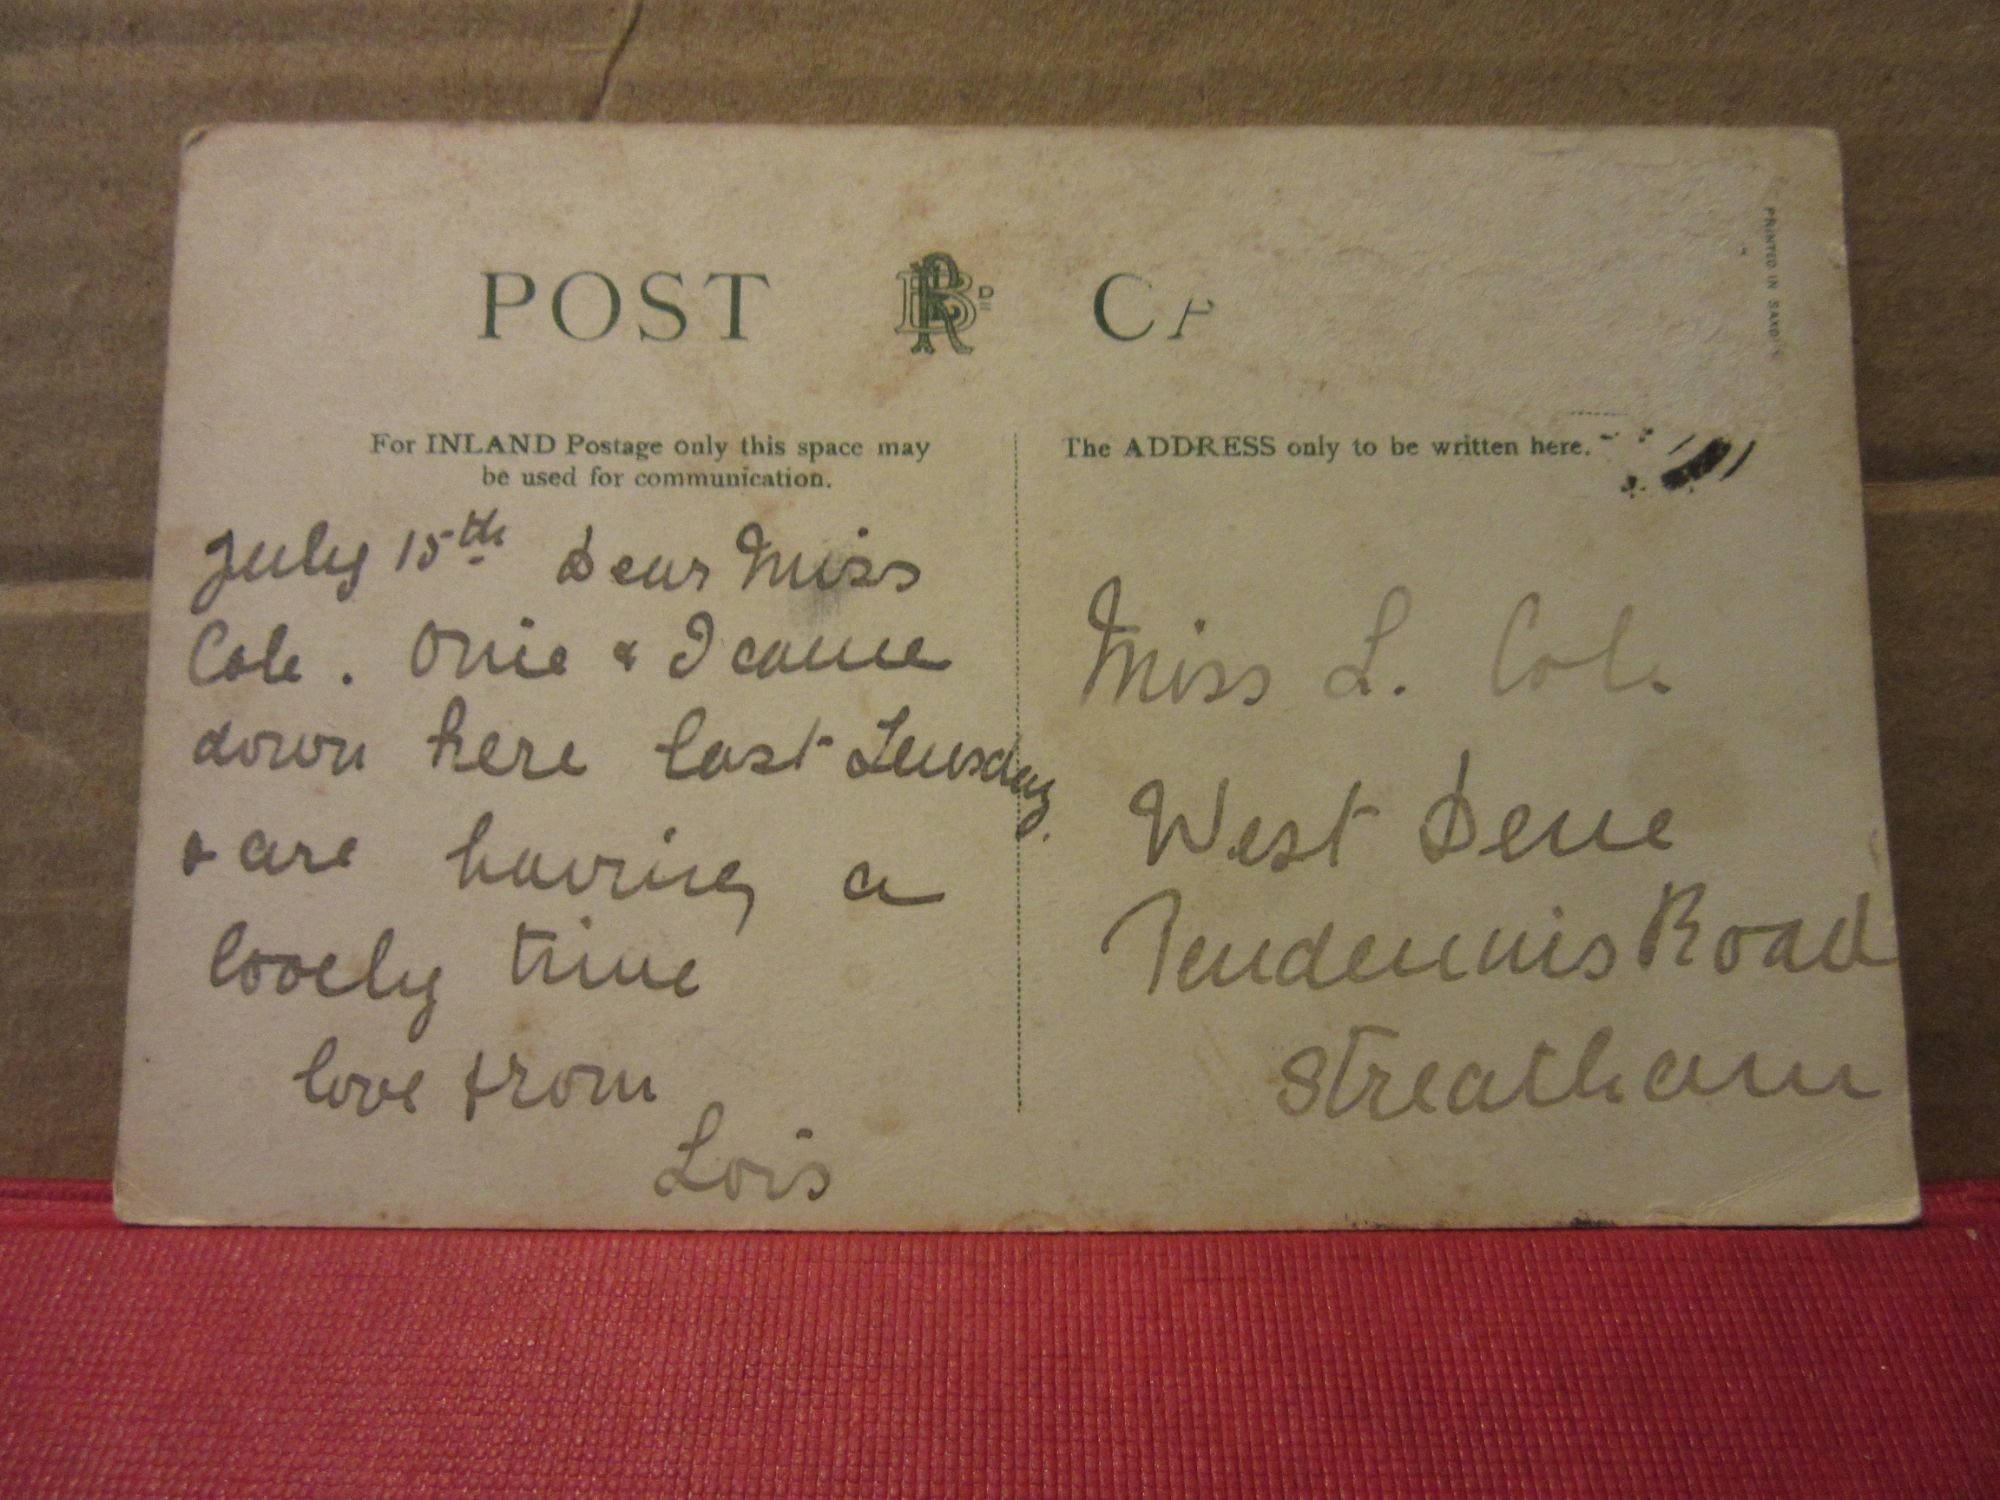 POST CA
PRINTED IN SAXONY
For INLAND Postage only this space may
be used for communication.
The ADDRESS only to be written here.
July 15th Dear Miss
Cole. & I came
down here last Teusday.
& are having a
lovely time
love from
Lois
Miss L. Cole.
West Dene
Pendennis Road
Streatham